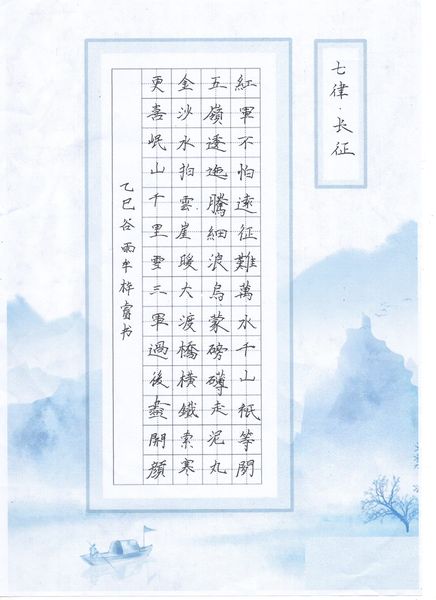 七律·长征
紅軍不怕遠征難萬水千山衹等閒
五嶺逶迤騰細浪烏蒙磅礴走泥丸
金沙水拍雲崖暖大渡橋橫鐵索寒
更喜岷山千里雪三軍過後盡開顏
乙巳谷雨牟桦富书